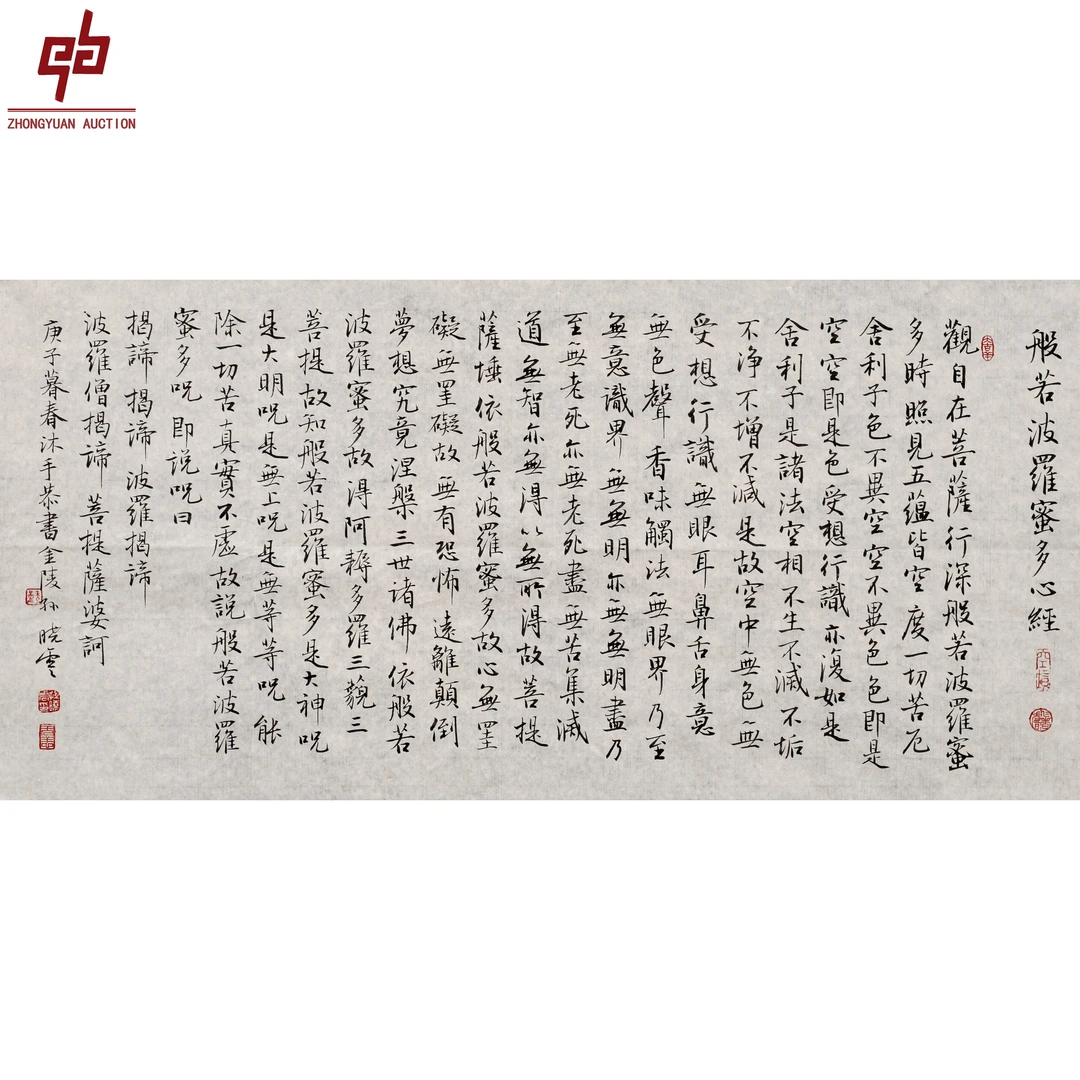 ZHONGYUAN AUCTION
般若波羅蜜多心經
觀自在菩薩行深般若波羅蜜
多時照見五蘊皆空度一切苦厄
舍利子色不異空空不異色色即是
空空即是色受想行識亦復如是
舍利子是諸法空相不生不滅不垢
不淨不增不減是故空中無色無
受想行識無眼耳鼻舌身意
無色聲香味觸法無眼界乃至
無意識界無無明亦無無明盡乃
至無老死亦無老死盡無苦集滅
道無智亦無得以無所得故菩提
薩埵依般若波羅蜜多故心無罣
礙無罣礙故無有恐怖遠離顛倒
夢想究竟涅槃三世諸佛依般若
波羅蜜多故得阿耨多羅三藐三
菩提故知般若波羅蜜多是大神呪
是大明呪是無上呪是無等等呪能
除一切苦真實不虛故說般若波羅
蜜多呪即說呪曰
揭諦揭諦波羅揭諦
波羅僧揭諦菩提薩婆訶
庚子暮春沐手恭書金陵孫曉雲